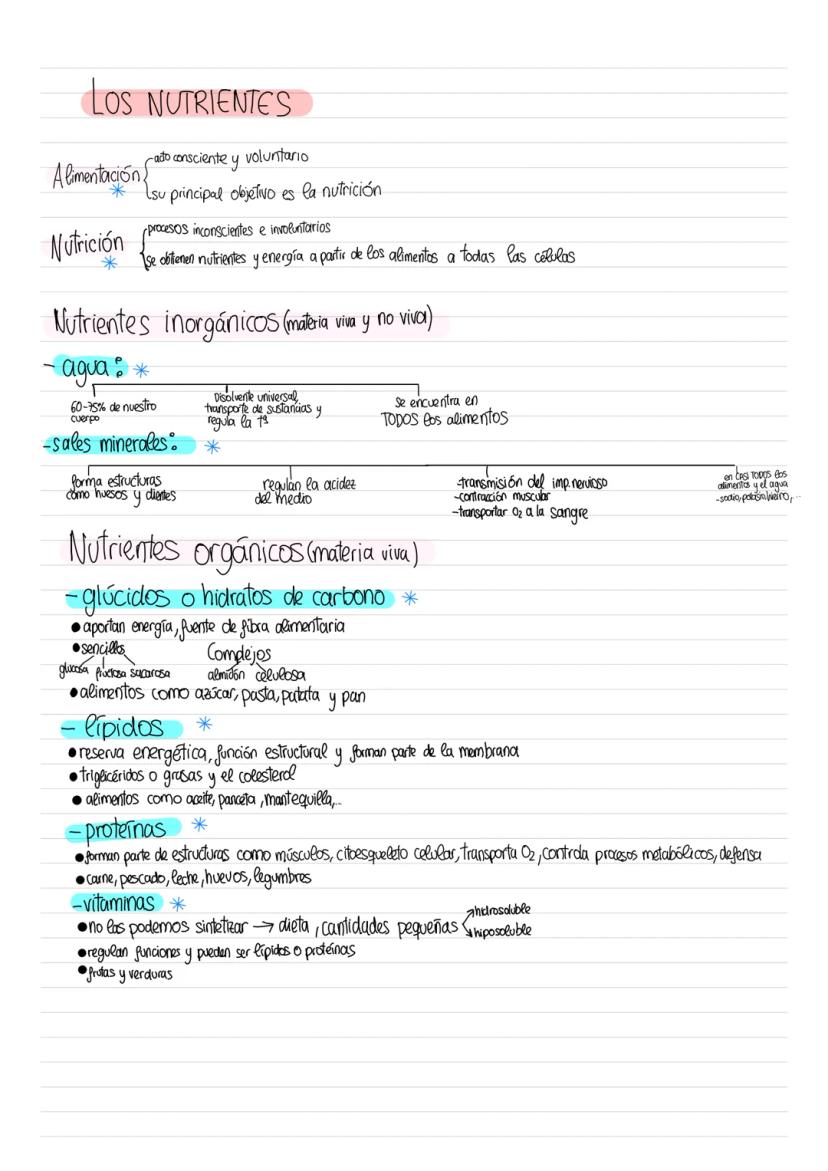 LOS NUTRIENTES
Alimentación
acto consciente y voluntario
su principal objetivo es la nutrición
Nutrición
procesos inconscientes e involuntarios
se obtienen nutrientes y energía a partir de los alimentos a todas las células
Nutrientes inorgánicos (materia viva y no viva)
- agua:
60-75% de nuestro cuerpo
Disolvente universal, transporte de sustancias y regula la tª
se encuentra en TODOS los alimentos
- sales minerales:
forma estructuras como huesos y dientes
regulan la acidez del medio
-transmisión del imp. nervioso
-contracción muscular
-transportar O₂ a la sangre
en CASI TODOS los alimentos y el agua
-sodio, potasio, hierro,...
Nutrientes orgánicos (materia viva)
- glúcidos o hidratos de carbono
● aportan energía, fuente de fibra alimentaria
● sencillos Complejos
glucosa fructosa sacarosa almidón celulosa
● alimentos como azúcar, pasta, patata y pan
- lípidos
● reserva energética, función estructural y forman parte de la membrana
● triglicéridos o grasas y el colesterol
● alimentos como aceite, panceta, mantequilla,...
- proteínas
● forman parte de estructuras como músculos, citoesqueleto celular, transporta O₂, controla procesos metabólicos, defensa
● carne, pescado, leche, huevos, legumbres
- vitaminas
● no las podemos sintetizar → dieta, cantidades pequeñas
hidrosoluble
hiposoluble
● regulan funciones y pueden ser lípidos o proteínas
● frutas y verduras